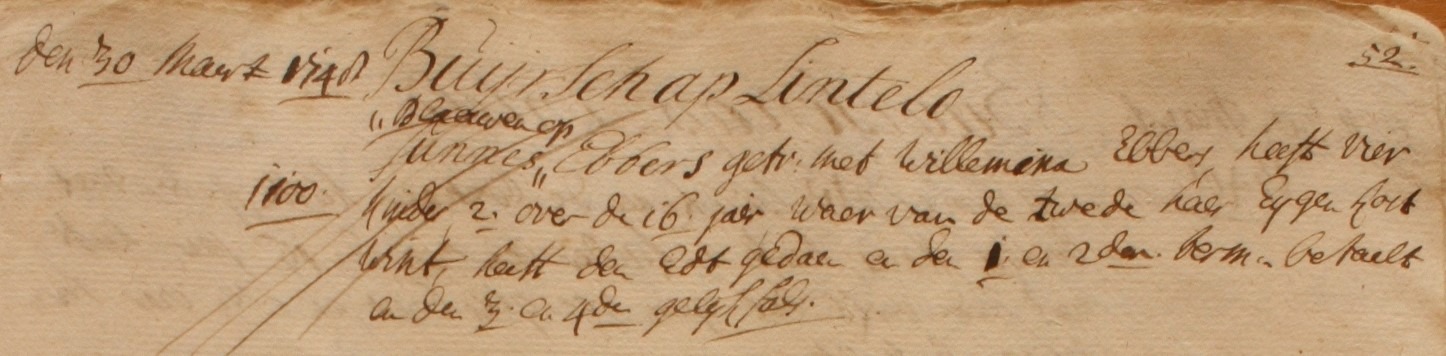 den 30 Maert 1748 Buijrschap Lintelo 52.
„Blaeuwenop
Sunnes„ Ebbers getr. met Willemina Ebbers heeft vier
1100. kinder 2. over de 16 jaer waer van de twede haer Eygen kost
wint, heeft den Edt gedaen en den 1. en 2den. term.n betaelt
en den 3. en 4den gelyk fals.